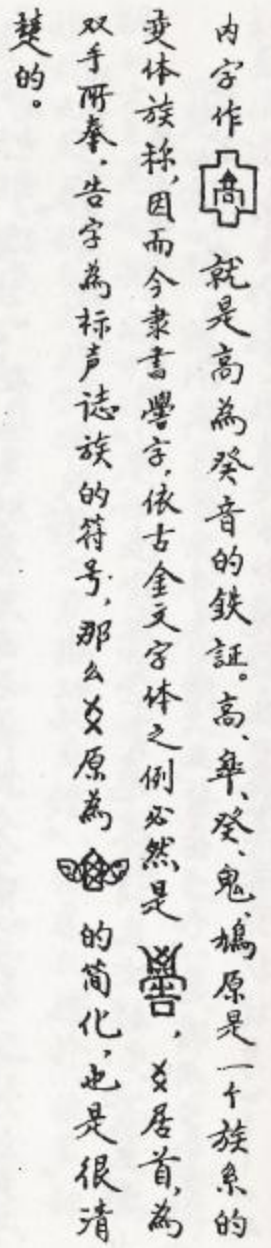 内字作就是高為癸音的鉄証。高、皋、癸、鬼、鳩原是一个族系的
变体族称,因而今隶書嚳字,依古金文字体之例必然是,爻居首,為
双手所奉,告字為标声誌族的符号,那么爻原為的简化,也是很清
楚的。